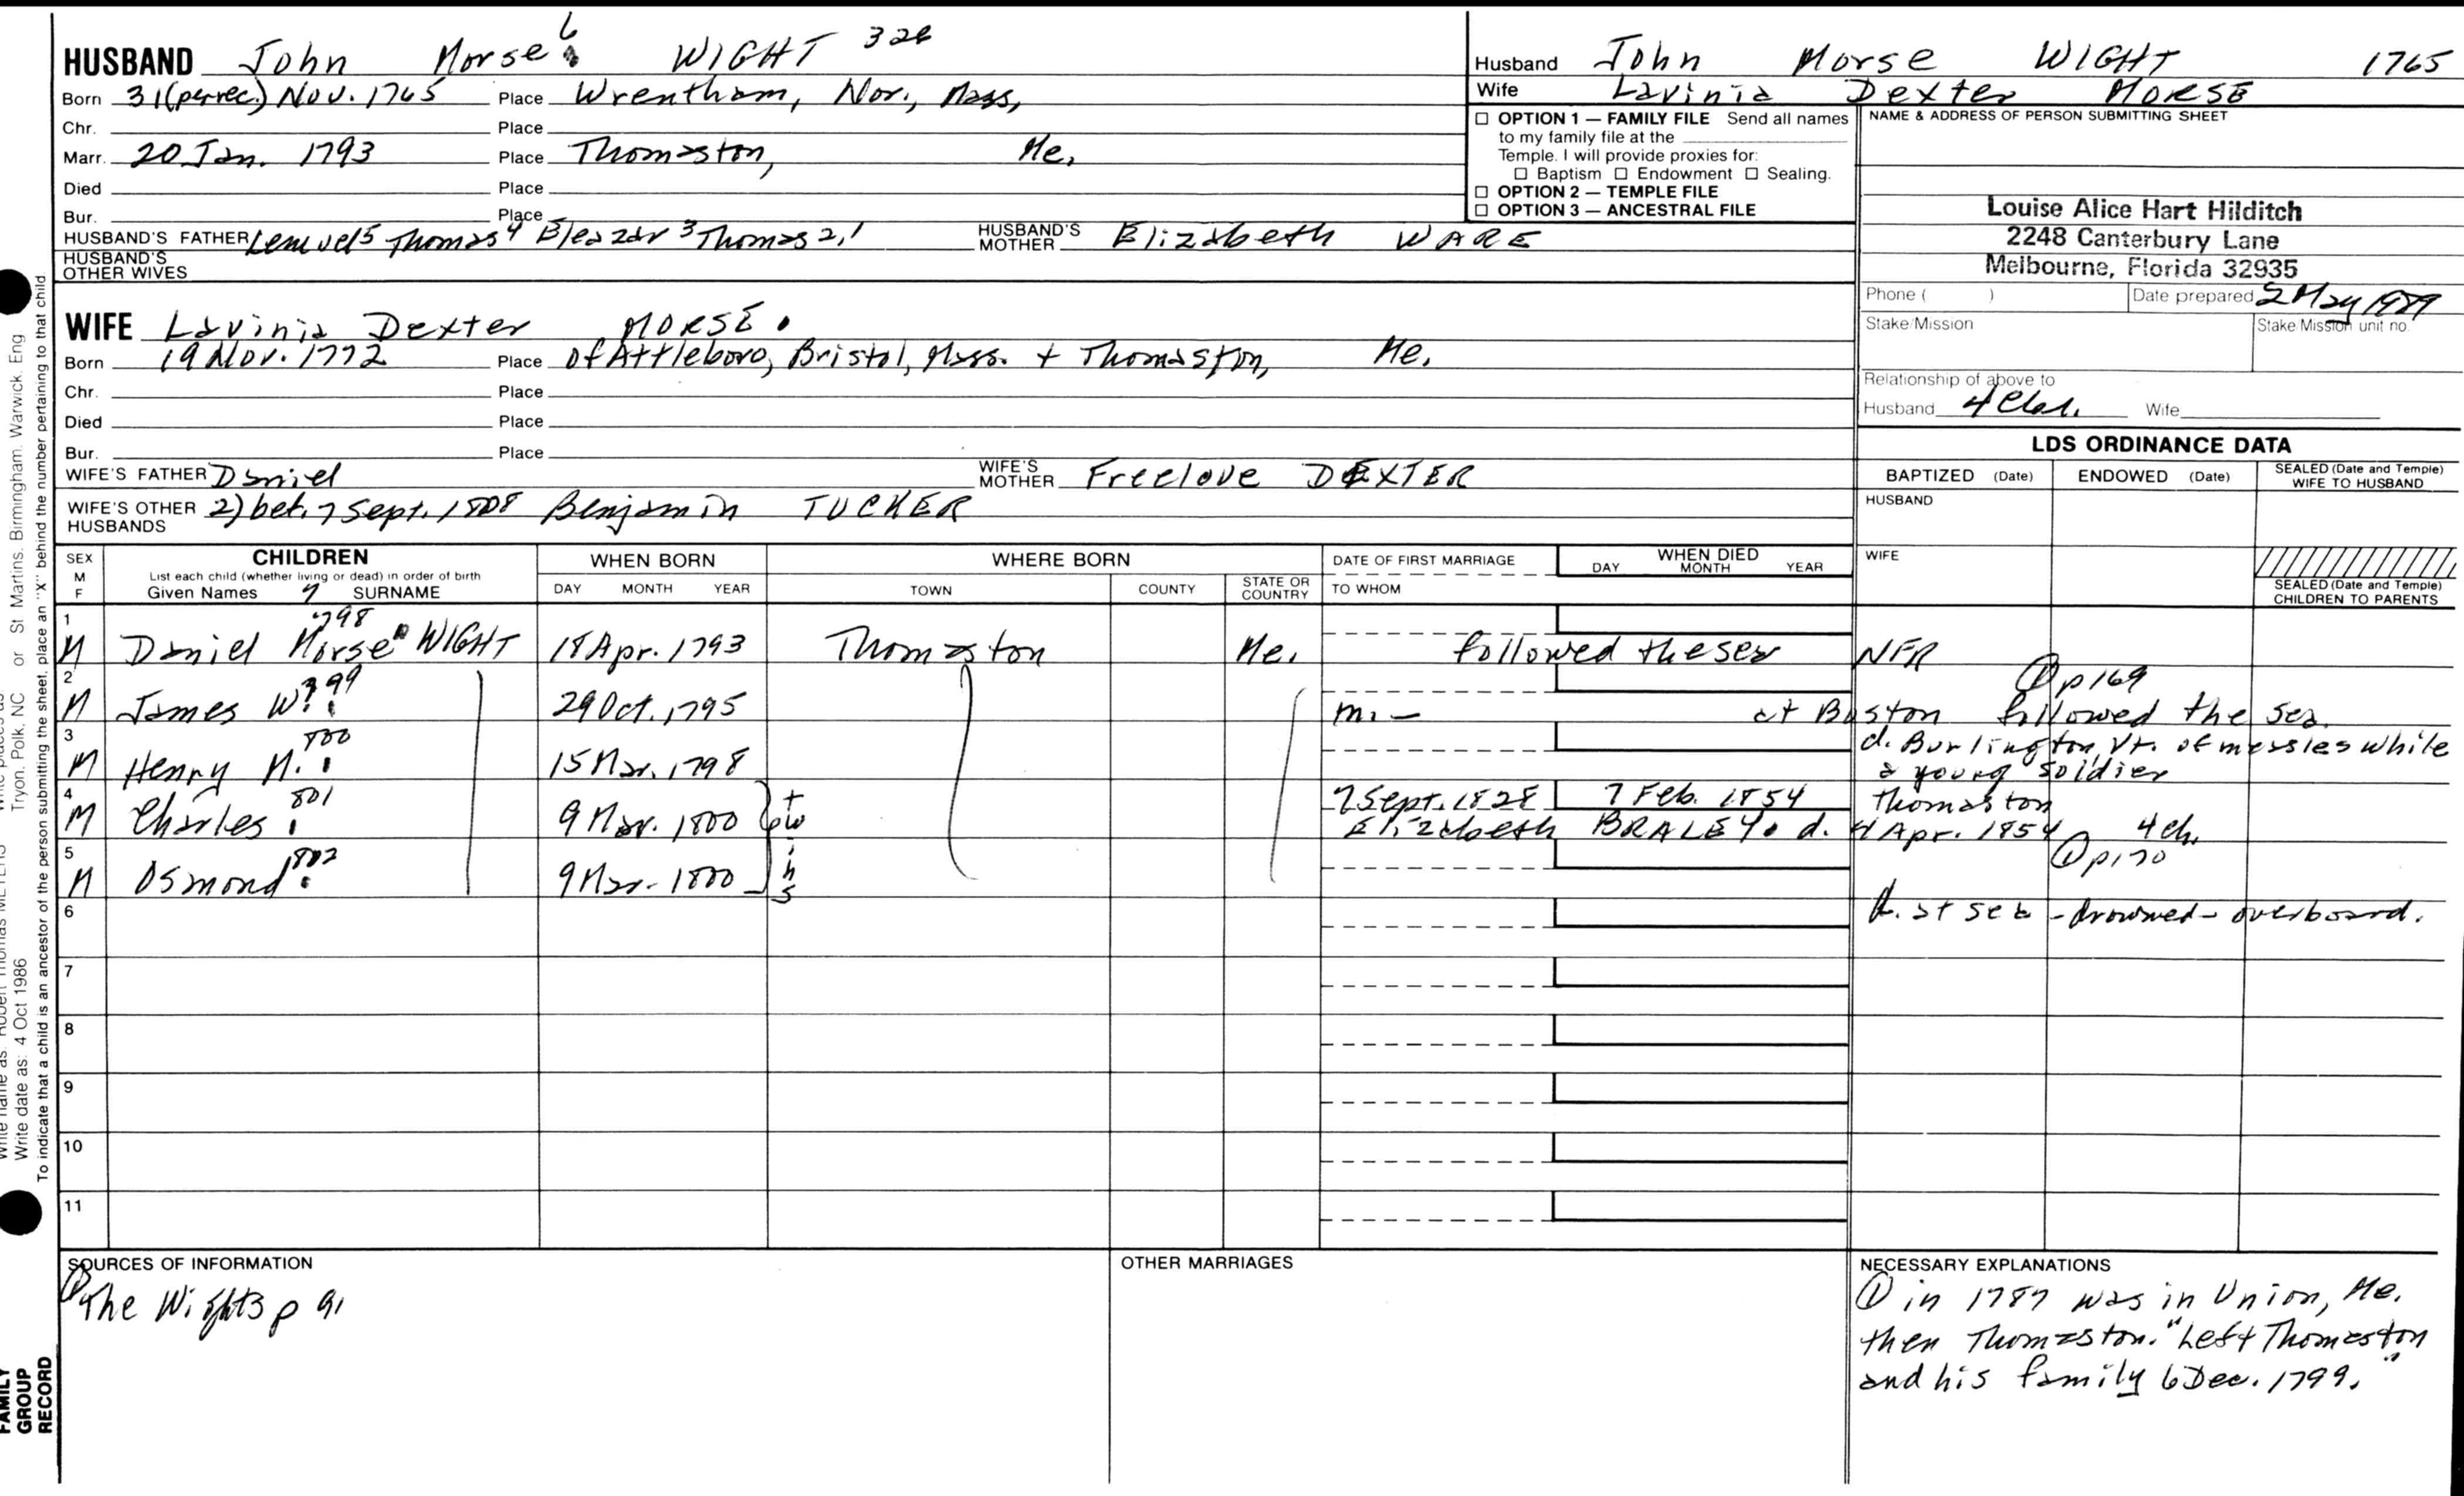 HUSBAND John Morse 6 WIGHT 328
Born 31 (per rec.) Nov. 1765 Place Wrentham, Nor., Mass,
Chr. Place
Marr. 20 Jan. 1793 Place Thomaston, Me,
Died Place
Bur. Place
HUSBAND'S FATHER Lemuel5 Thomas4 Eleazar3 Thomas2,1 HUSBAND'S MOTHER Elizabeth WARE
HUSBAND'S OTHER WIVES
WIFE Lavinia Dexter MORSE.
Born 19 Nov. 1772 Place of Attleboro, Bristol, Mass. + Thomaston, Me,
Chr. Place
Died Place
Bur. Place
WIFE'S FATHER Daniel WIFE'S MOTHER Freelove DEXTER
WIFE'S OTHER HUSBANDS 2) bet. 7 Sept. 1808 Benjamin TUCKER
Husband John Morse WIGHT 1765
Wife Lavinia Dexter MORSE
☐ OPTION 1 — FAMILY FILE Send all names
to my family file at the
Temple. I will provide proxies for:
☐ Baptism ☐ Endowment ☐ Sealing.
☐ OPTION 2 — TEMPLE FILE
☐ OPTION 3 — ANCESTRAL FILE
NAME & ADDRESS OF PERSON SUBMITTING SHEET
Louise Alice Hart Hilditch
2248 Canterbury Lane
Melbourne, Florida 32935
Phone ( ) Date prepared 2 May 1989
Stake/Mission Stake/Mission unit no.
Relationship of above to
Husband Wife
LDS ORDINANCE DATA
BAPTIZED (Date) ENDOWED (Date) SEALED (Date and Temple) WIFE TO HUSBAND
HUSBAND
WIFE
SEALED (Date and Temple) CHILDREN TO PARENTS
SEX M F
CHILDREN
List each child (whether living or dead) in order of birth
Given Names 7 SURNAME
WHEN BORN
DAY MONTH YEAR
WHERE BORN
TOWN COUNTY STATE OR COUNTRY
DATE OF FIRST MARRIAGE
TO WHOM
WHEN DIED
DAY MONTH YEAR
1 M Daniel Morse 798 WIGHT 18 Apr. 1793 Thomaston Me. followed the sea NFR
2 M James W. 799 29 Oct. 1795 m. — at Boston followed the sea. ① p169
3 M Henry M. 800 15 Mar. 1798 d. Burlington, Vt. of measles while
a young soldier
4 M Charles 801 9 Mar. 1800 twins 7 Sept. 1828 7 Feb. 1854 Thomaston
Elizabeth BRALEY. d. 4 Apr. 1854 4 ch.
① p170
5 M Osmond 802 9 Mar. 1800
d. at sea - drowned - overboard.
6
7
8
9
10
11
SOURCES OF INFORMATION
① The Wights p 91
OTHER MARRIAGES
NECESSARY EXPLANATIONS
① in 1787 was in Union, Me.
then Thomaston. "Left Thomaston
and his family 6 Dec. 1799."
To indicate that a child is an ancestor of the person submitting the sheet, place an "X" behind the number pertaining to that child
Tryon, Polk, NC or St Martins, Birmingham, Warwick, Eng
Write date as: 4 Oct 1986
FAMILY
GROUP
RECORD